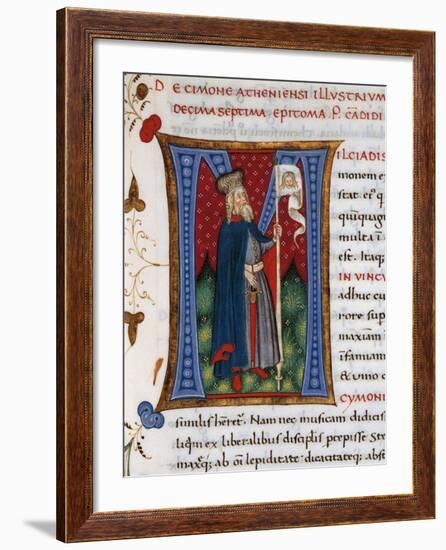 DE CIMONE ATHENIENSI ILLVSTRIVM
DECIMA SEPTIMA EPITOMA P. CA̅DIDI
MILCIADIS
monem e
stat.
qui̅quag
multa i̅
est. Itaq
IN VINCV
adhuc cu
rore sup
maxi̅am
i̅famiam
& uno c
CYMONI
similis he̅ret. Nam neq musicam didicis
liq̅m ex liberalibus discipl̅is perpisse Ste
maxq; ab oi̅ lepiditate dicacitateq; abst